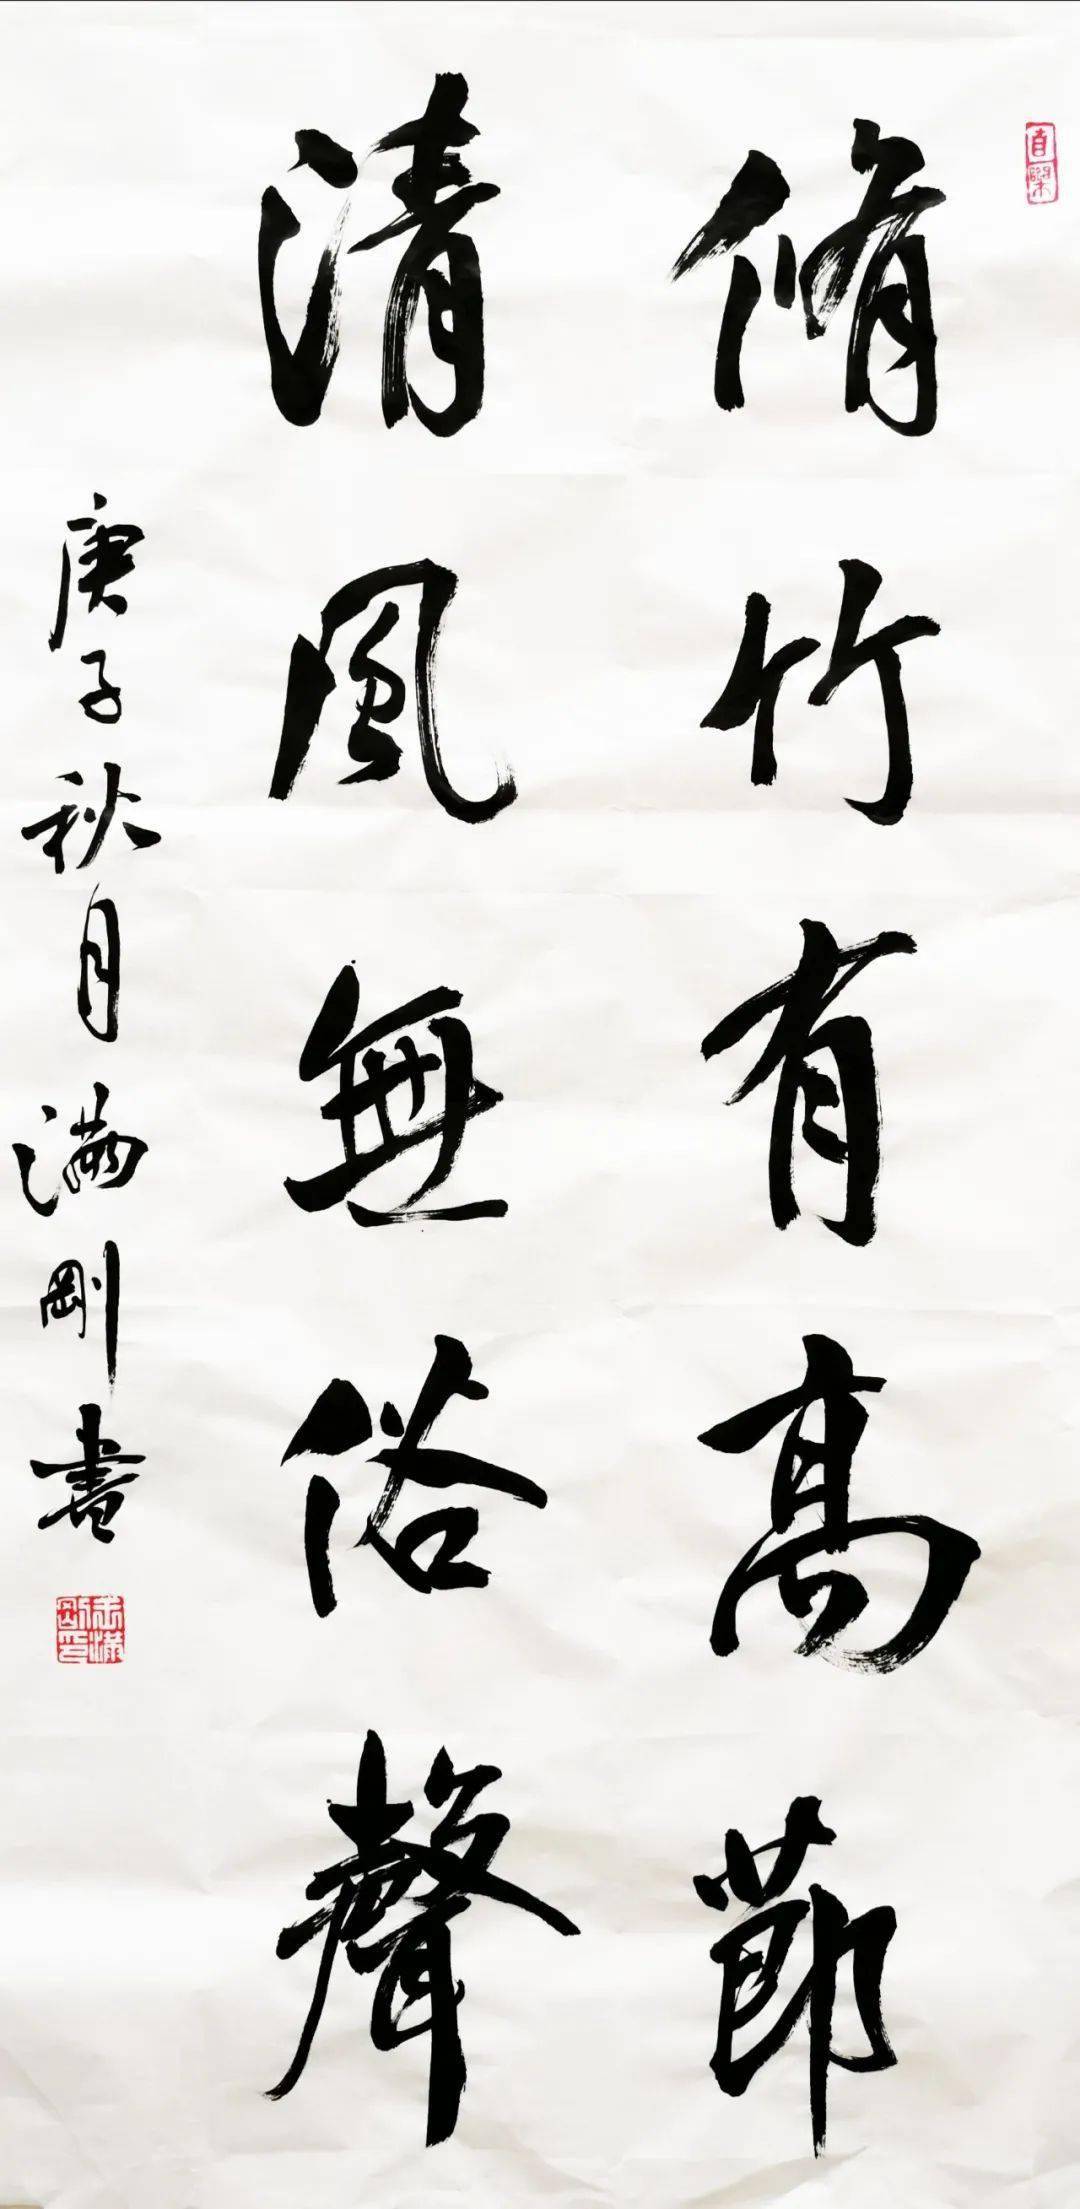 脩竹有高節
清風無俗聲
庚子秋月滿剛書